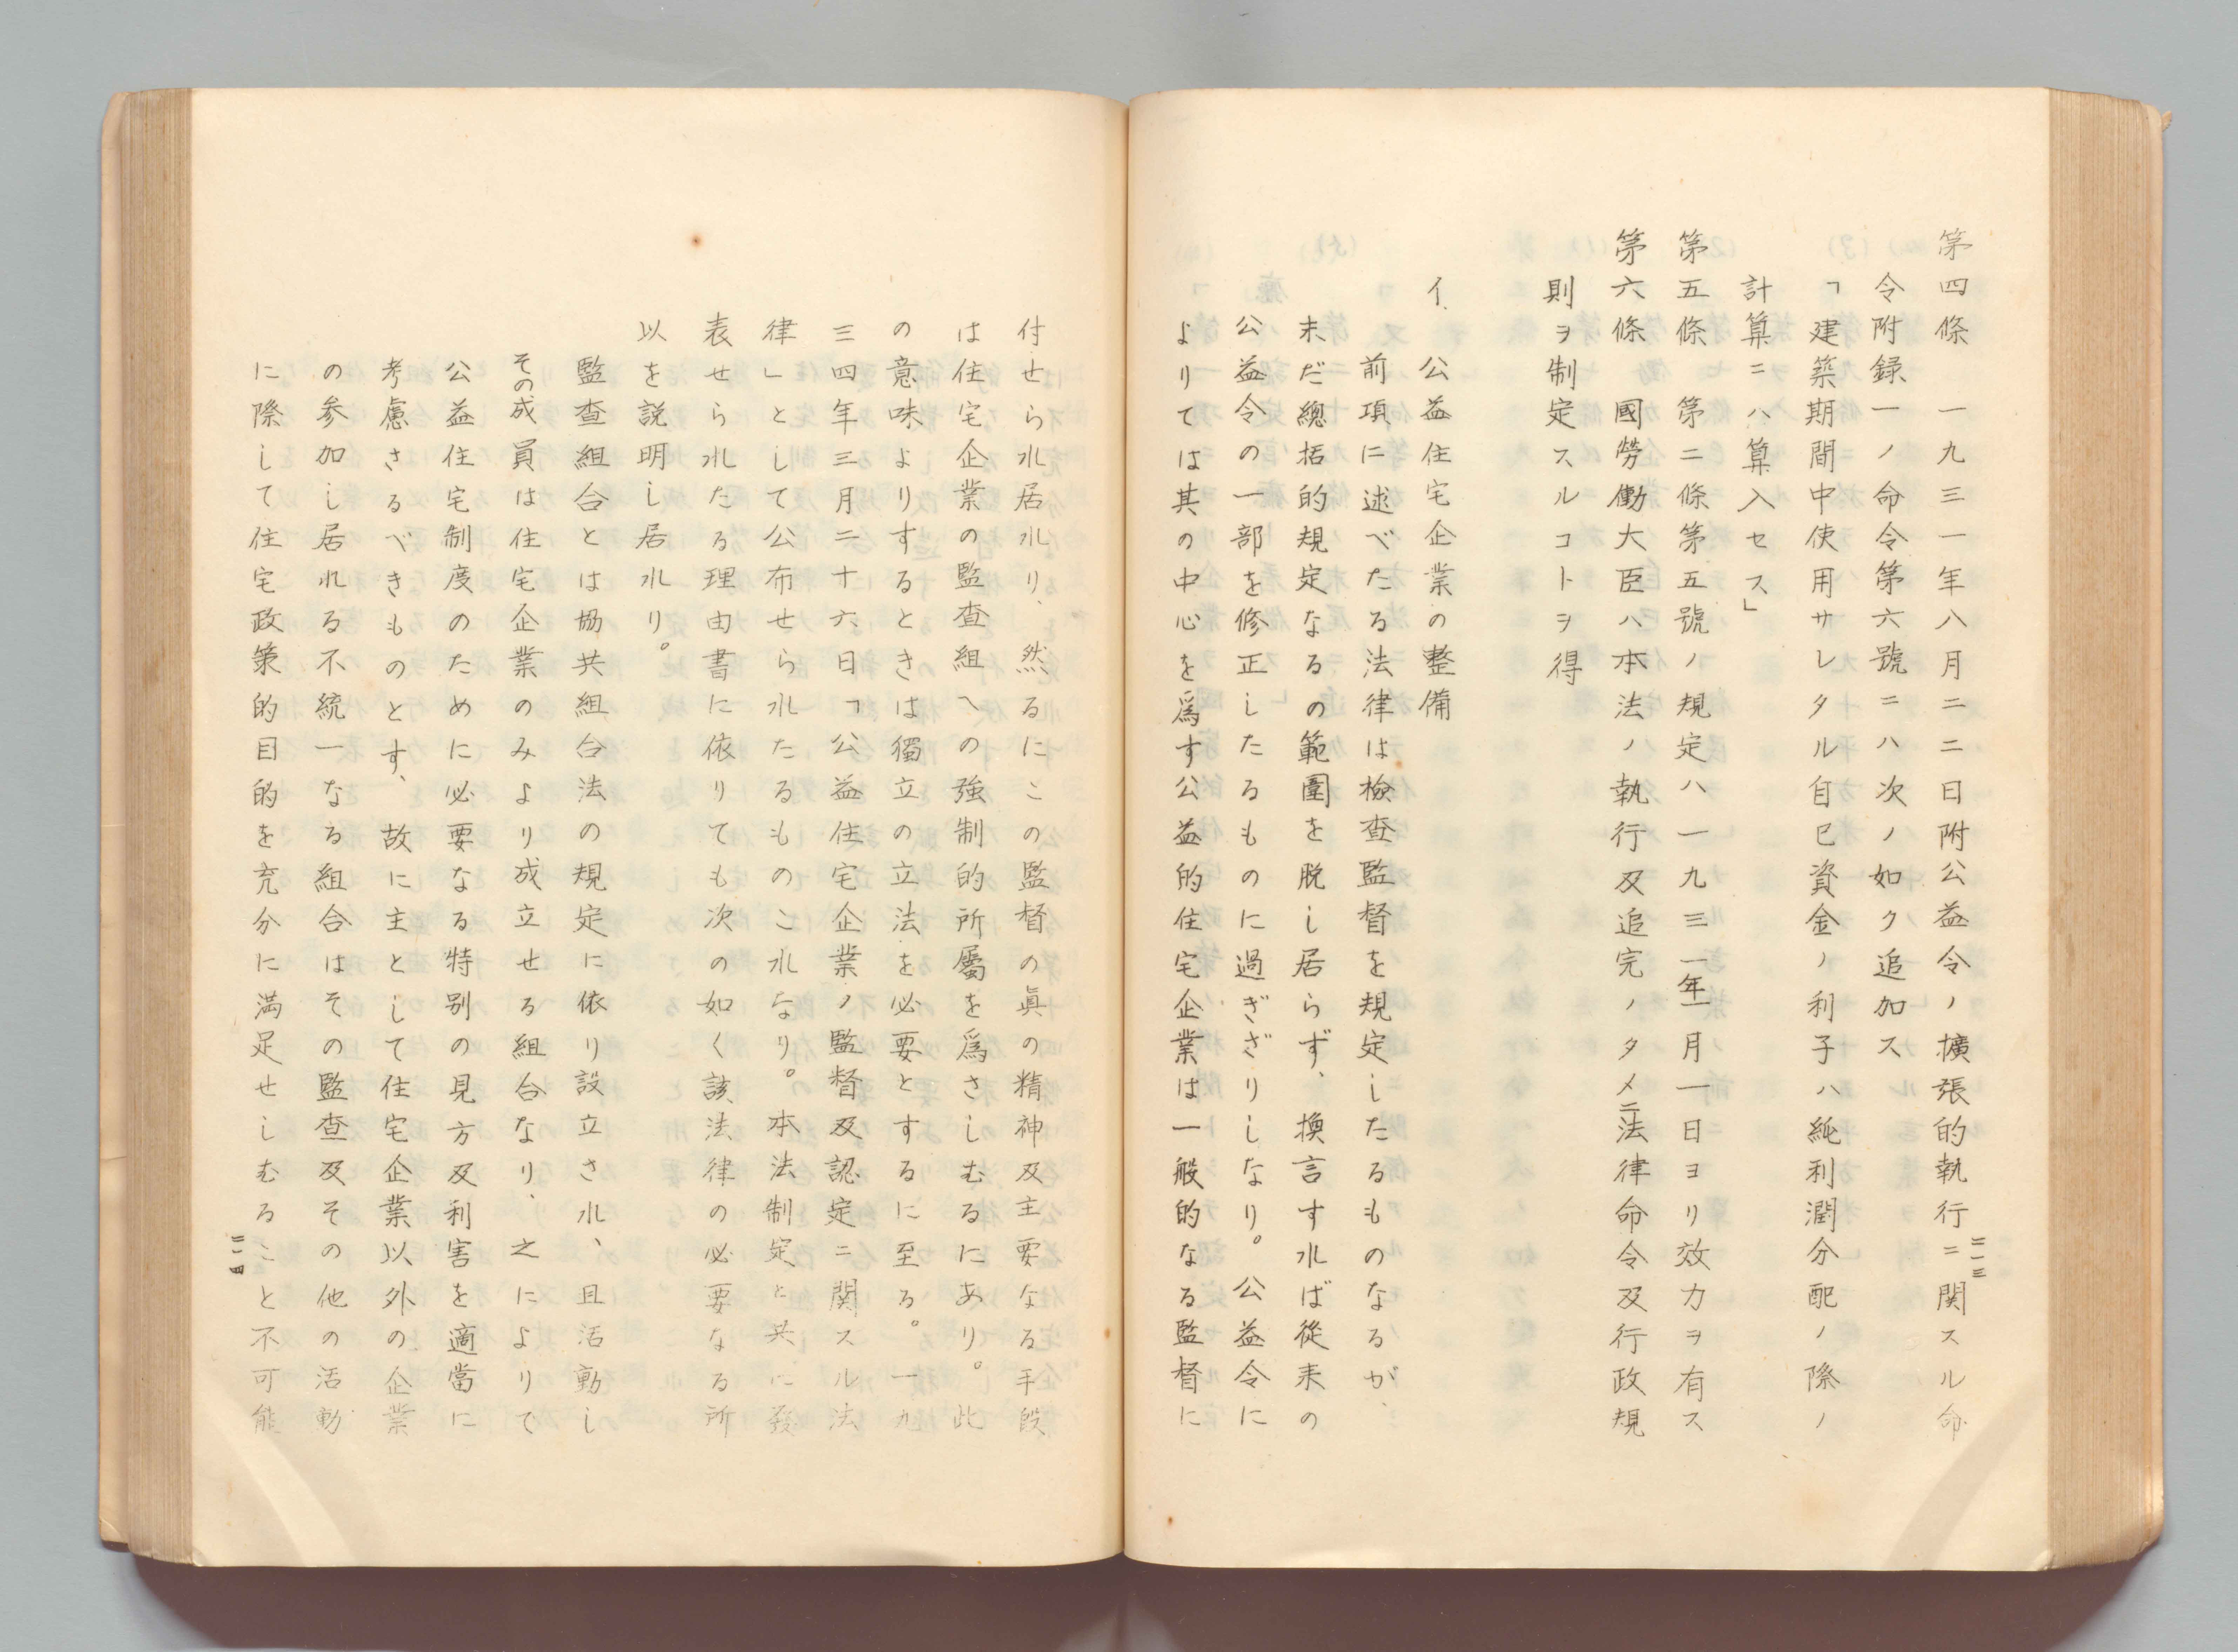 第四條　一九三一年八月二二日附公益令ノ擴張的執行ニ関スル命
令附録一ノ命令第六號ニハ次ノ如ク追加ス
「建築期間中使用サレタル自己資金ノ利子ハ純利潤分配ノ際ノ
計算ニハ算入セス」
第五條　第二條第五號ノ規定ハ一九三一年一月一日ヨリ效力ヲ有ス
第六條　國勞働大臣ハ本法ノ執行及追完ノタメニ法律命令及行政規
則ヲ制定スルコトヲ得
イ．公益住宅企業の整備
前項に述べたる法律は検査監督を規定したるものなるが、
未だ總括的規定なるの範圍を脱し居らず、換言すれば從来の
公益令の一部を修正したるものに過ぎざりしなり。公益令に
よりては其の中心を爲す公益的住宅企業は一般的なる監督に
二一三
付せられ居れり、然るにこの監督の眞の精神及主要なる手段
は住宅企業の監査組への強制的所屬を爲さしむるにあり。此
の意味よりするときは獨立の立法を必要とするに至る。一九
三四年三月二十六日「公益住宅企業ノ監督及認定ニ関スル法
律」として公布せられたるものこれなり。本法制定と共に發
表せられたる理由書に依りても次の如く該法律の必要なる所
以を説明し居れり。
監査組合とは協共組合法の規定に依り設立され、且活動し
その成員は住宅企業のみより成立せる組合なり、之によりて
公益住宅制度のために必要なる特別の見方及利害を適當に
考慮さるべきものとす、故に主として住宅企業以外の企業
の参加し居れる不統一なる組合はその監査及その他の活動
に際して住宅政策的目的を充分に満足せしむること不可能
二一四